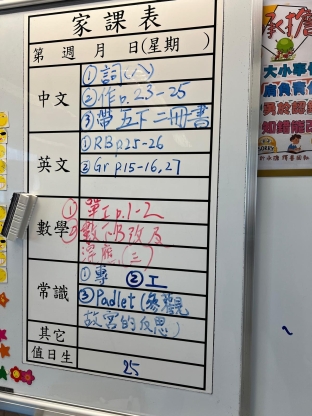 家課表
第 週 月 日(星期 )
中文
① 詞(八)
② 作p.23-25
③ 帶五下二冊書
英文
① RB p.25-26
② Gr p.15-16,27
數學
① 筆工p.1-2
常識
① 專 ② 工
③ Padlet (參觀
故宮的反思)
其它
值日生
25
承擔
大小事